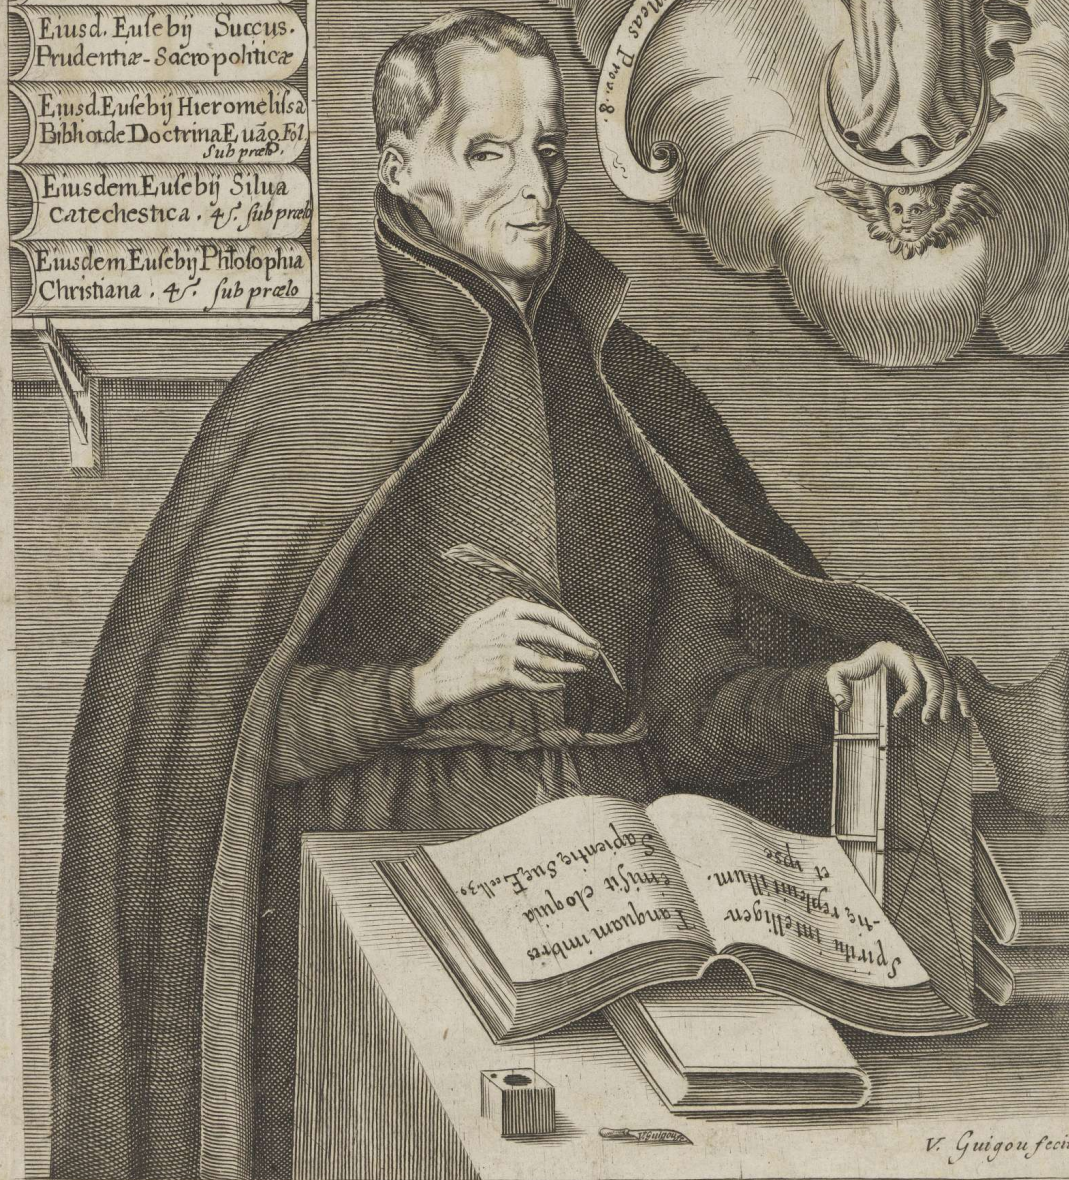 Eiusd. Eusebij Succus.
Prudentiæ-Sacropoliticæ
Eiusd. Eusebij Hieromelissa
Biblioť de Doctrina Euāg. Fol.
Sub prælo.
Eiusdem Eusebij Silua
Catechestica. 4ſ. sub prælo
Eiusdem Eusebij Philosophia
Christiana. 4ſ. sub prælo
meas Prov. 8.
Spiritu intelligen-
-tiæ replevit illum.
et ipse
Tanquam imbres
emisit eloquia
Sapientiæ Suæ, Eccli 39.
V. Guigou feci